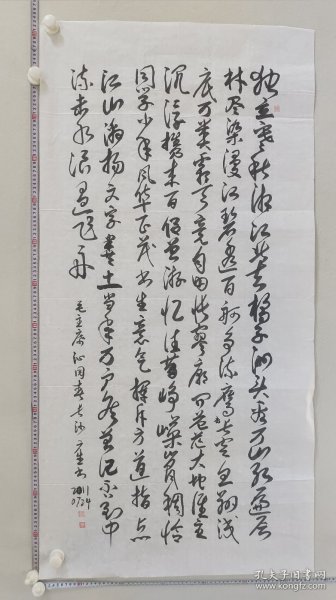 独立寒秋湘江北去橘子洲头看万山红遍层
林尽染漫江碧透百舸争流鹰击长空鱼翔浅
底万类霜天竞自由怅寥廓问苍茫大地谁主
沉浮携来百侣曾游忆往昔峥嵘岁月稠恰
同学少年风华正茂书生意气挥斥方遒指点
江山激扬文字粪土当年万户侯曾记否到中
流击水浪遏飞舟
毛主席沁园春长沙
孔夫子旧书网